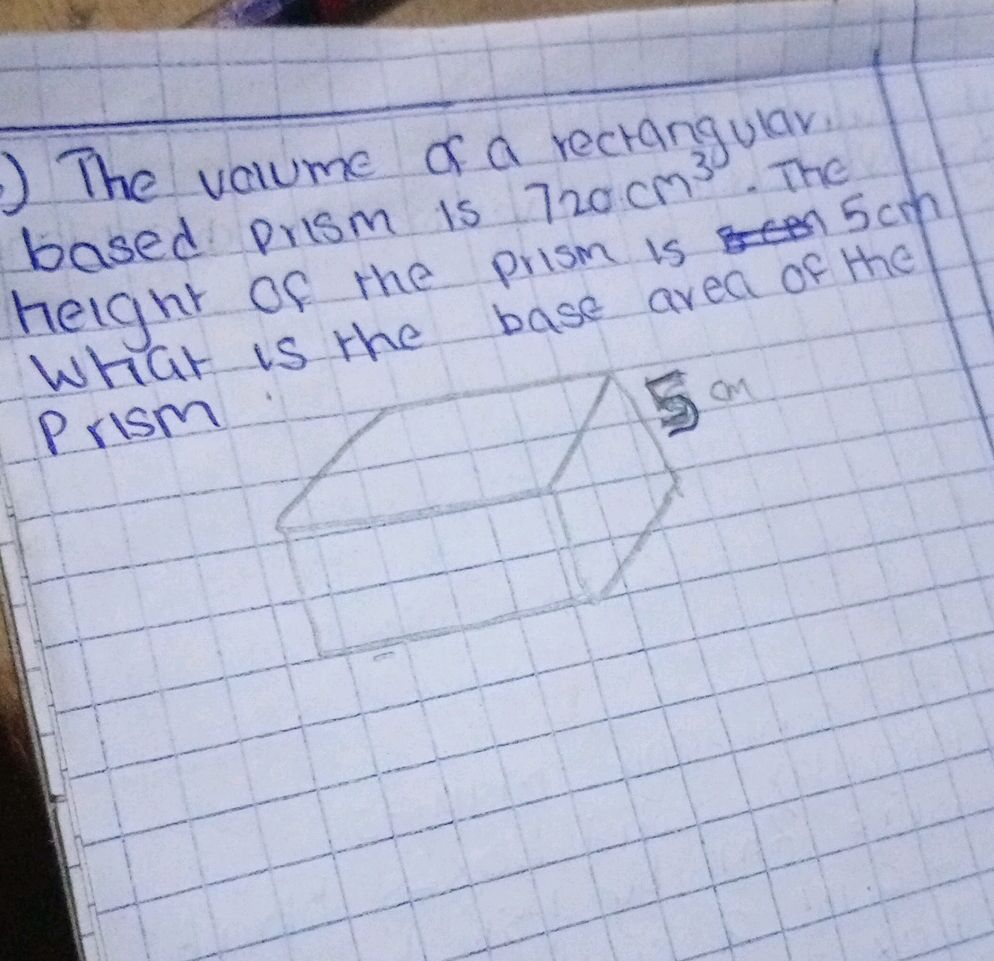 ) The volume of a rectangular
based prism is 720cm³. The
height of the prism is 5cm
What is the base area of the
Prism
5 cm